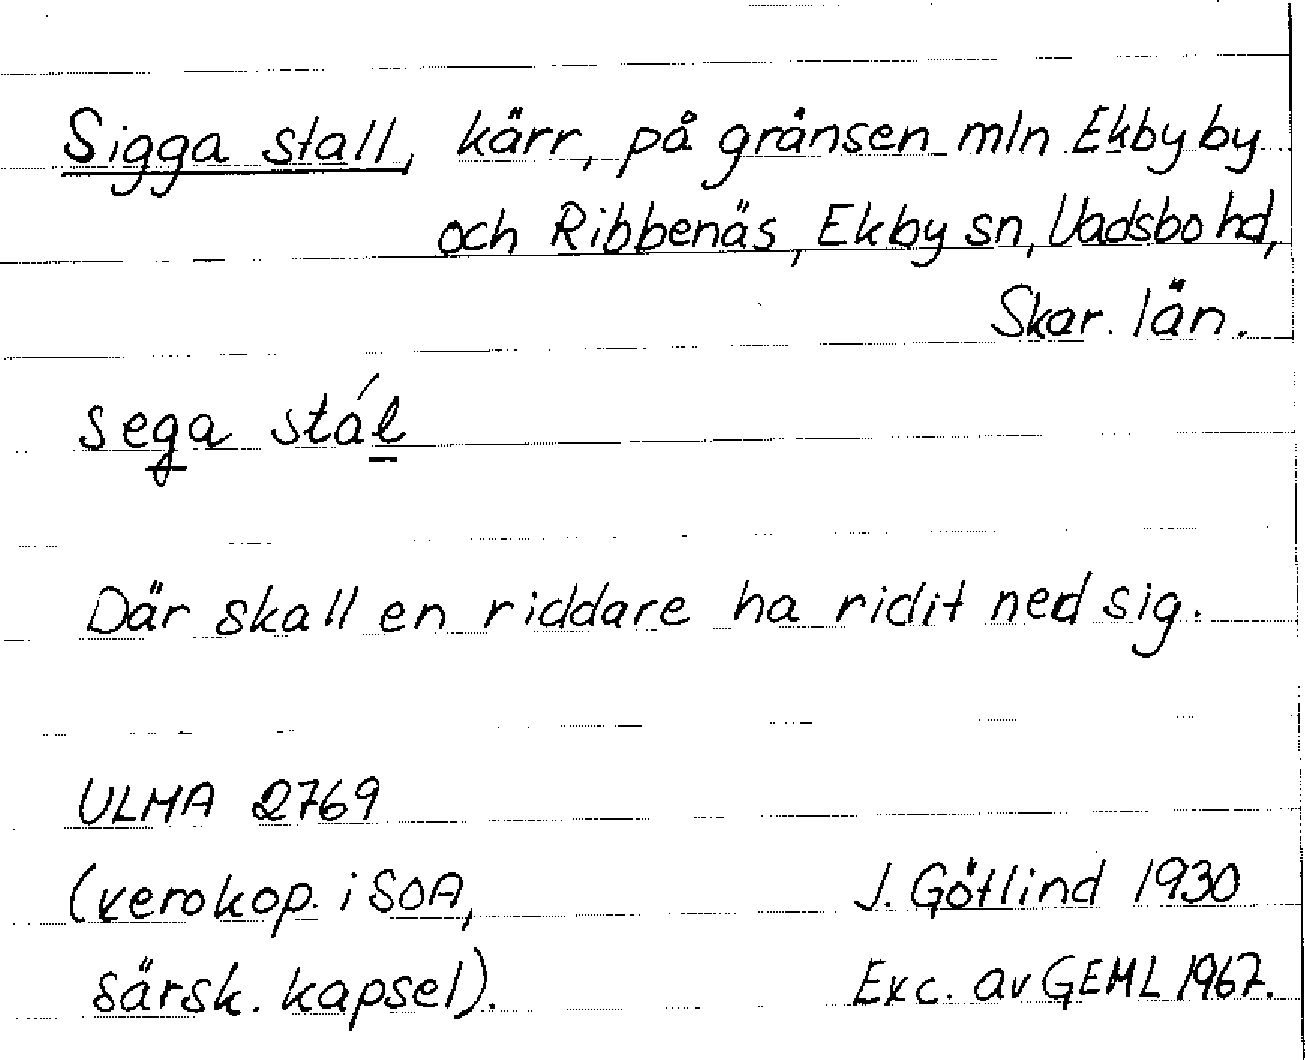 Sigga stall, kärr, på gränsen mln Ekby by
och Ribbenäs, Ekby sn, Vadsbo hd,
Skar. län.
sega stál
Där skall en riddare ha ridit ned sig.
ULMA 2769
(xerokop. i SOA,
J. Götlind 1930
särsk. kapsel).
Exc. av GEML 1967.